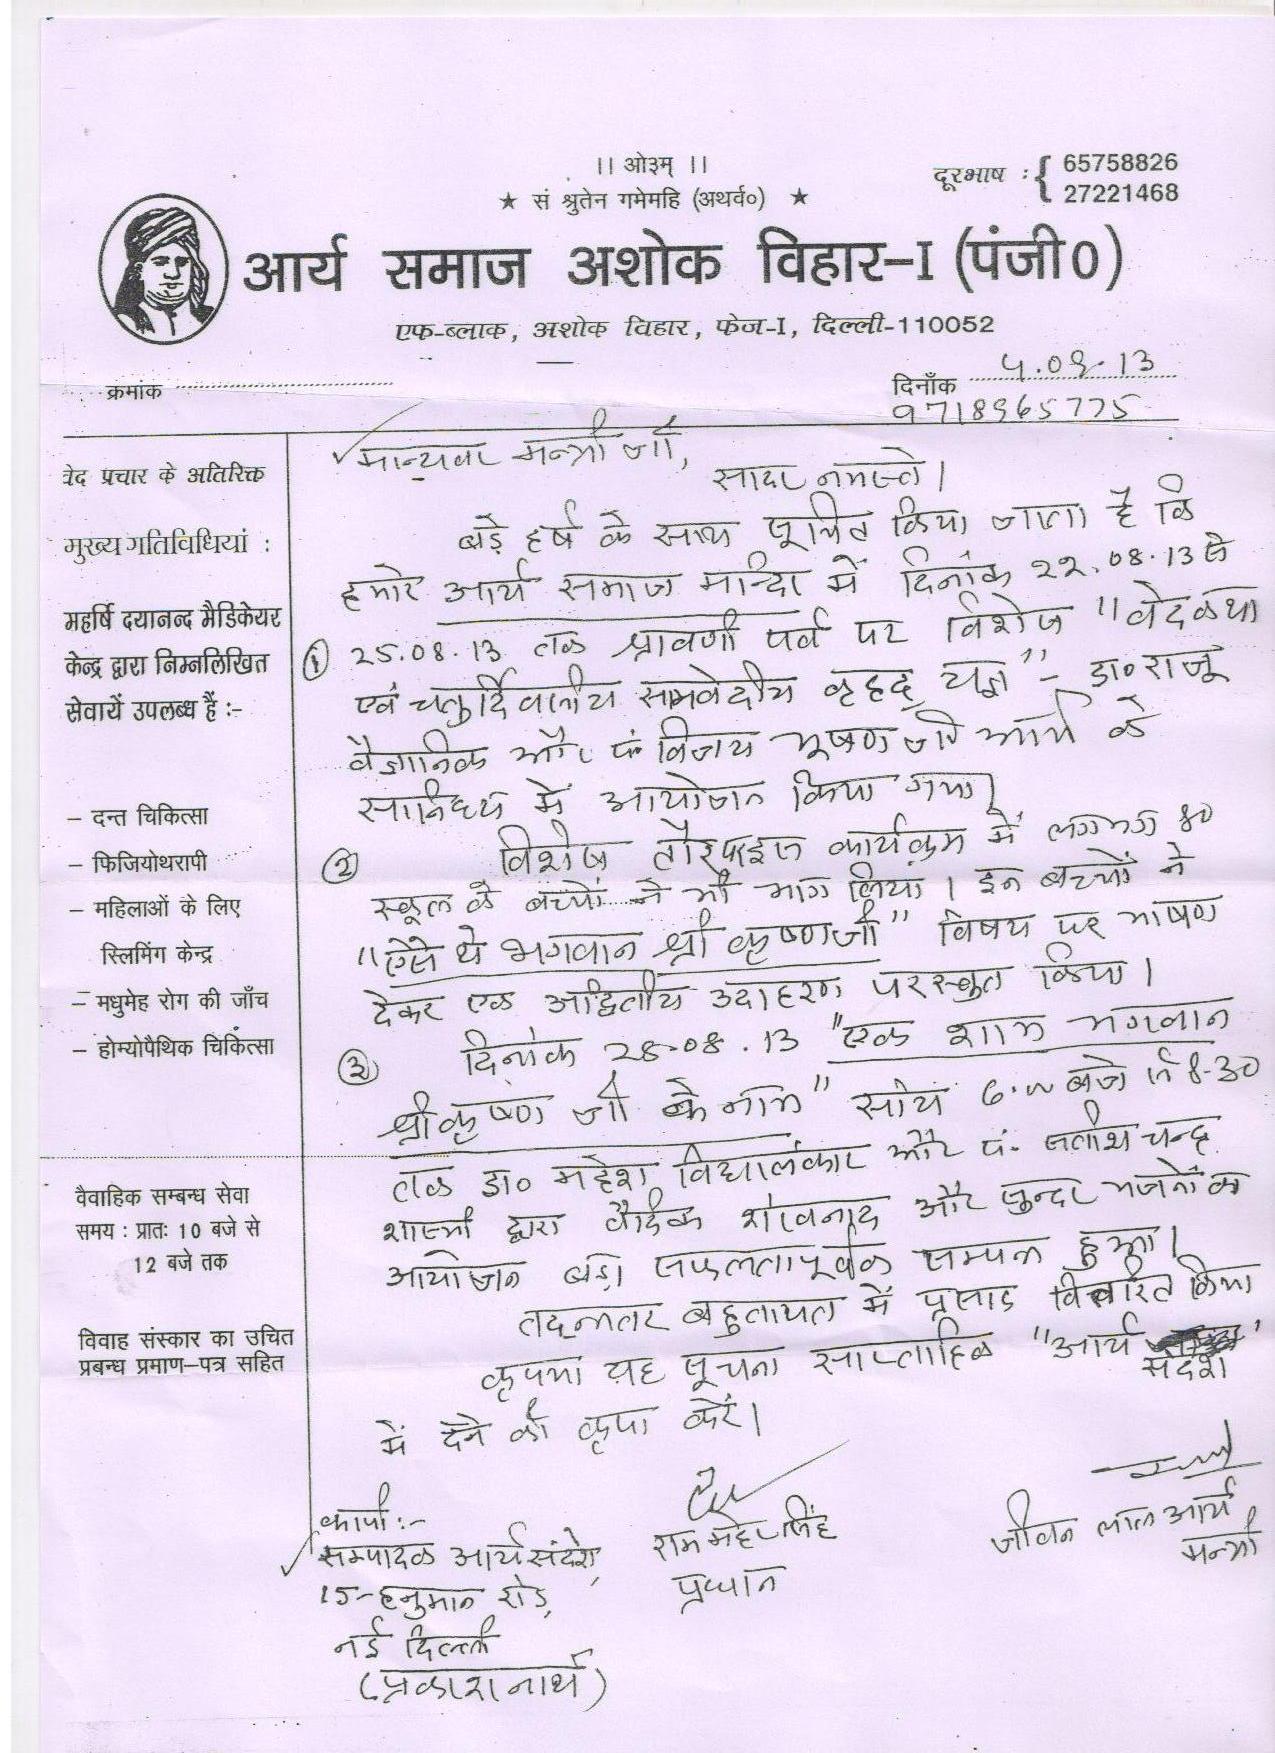 ।। ओ३म् ।।
★ सं श्रुतेन गमेमहि (अथर्व०) ★
दूरभाष : { 65758826
27221468
आर्य समाज अशोक विहार-I (पंजी0)
एफ-ब्लाक, अशोक विहार, फेज-I, दिल्ली-110052
क्रमांक
दिनाँक 5.09.13
9718965775
वेद प्रचार के अतिरिक्त
मुख्य गतिविधियां :
महर्षि दयानन्द मैडिकेयर
केन्द्र द्वारा निम्नलिखित
सेवायें उपलब्ध हैं :-
– दन्त चिकित्सा
– फिजियोथरापी
– महिलाओं के लिए
स्लिमिंग केन्द्र
– मधुमेह रोग की जाँच
– होम्योपैथिक चिकित्सा
वैवाहिक सम्बन्ध सेवा
समय : प्रातः 10 बजे से
12 बजे तक
विवाह संस्कार का उचित
प्रबन्ध प्रमाण-पत्र सहित
मान्यवर मन्त्री जी,
सादर नमस्ते।
बड़े हर्ष के साथ सूचित किया जाता है कि
हमारे आर्य समाज मन्दिर में दिनांक 22.08.13 से
① 25.08.13 तक श्रावणी पर्व पर विशेष "वेदकथा
एवं चतुर्दिवसीय सामवेदीय वृहद् यज्ञ" - डा० राजू
वैज्ञानिक और पं विजय भूषण जी आर्य के
सानिध्य में आयोजन किया गया।
② विशेष तौर कार्यक्रम में लगभग 80
स्कूल के बच्चों ने भी भाग लिया। इन बच्चों ने
"ऐसे थे भगवान श्री कृष्णजी" विषय पर भाषण
देकर एक अद्वितीय उदाहरण परस्तुत किया।
③ दिनांक 28-08.13 "एक शाम भगवान
श्री कृष्ण जी के नाम" सांय 6.00 बजे से 8-30
तक डा० महेश विद्यालंकार और पं. सतीश चन्द्र
शास्त्री द्वारा वैदिक शंखनाद और सुन्दर भजनों का
आयोजन बड़ी सफलतापूर्वक सम्पन्न हुआ।
तद्नन्तर बहुतायत में प्रसाद वितरित किया
कृपया यह सूचना साप्ताहिक "आर्य संदेश"
में देने की कृपा करें।
कापी :-
सम्पादक आर्य संदेश,
15-हनुमान रोड,
नई दिल्ली
(प्रकाशनार्थ)
राम मेहर सिंह
प्रधान
जीवन लाल आर्य
मन्त्री